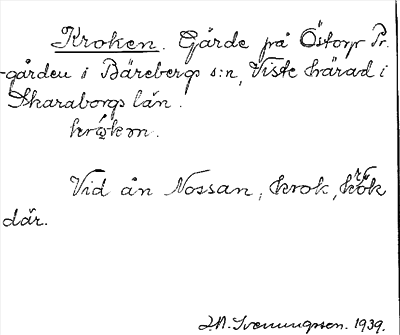 Kroken. Gärde på Östorp Pr.
-gården i Bärebergs s:n, Viste härad i
Skaraborgs län.
krókm.
Vid ån Nossan, krok, krök
där.
J.A. Svenungsson. 1939.